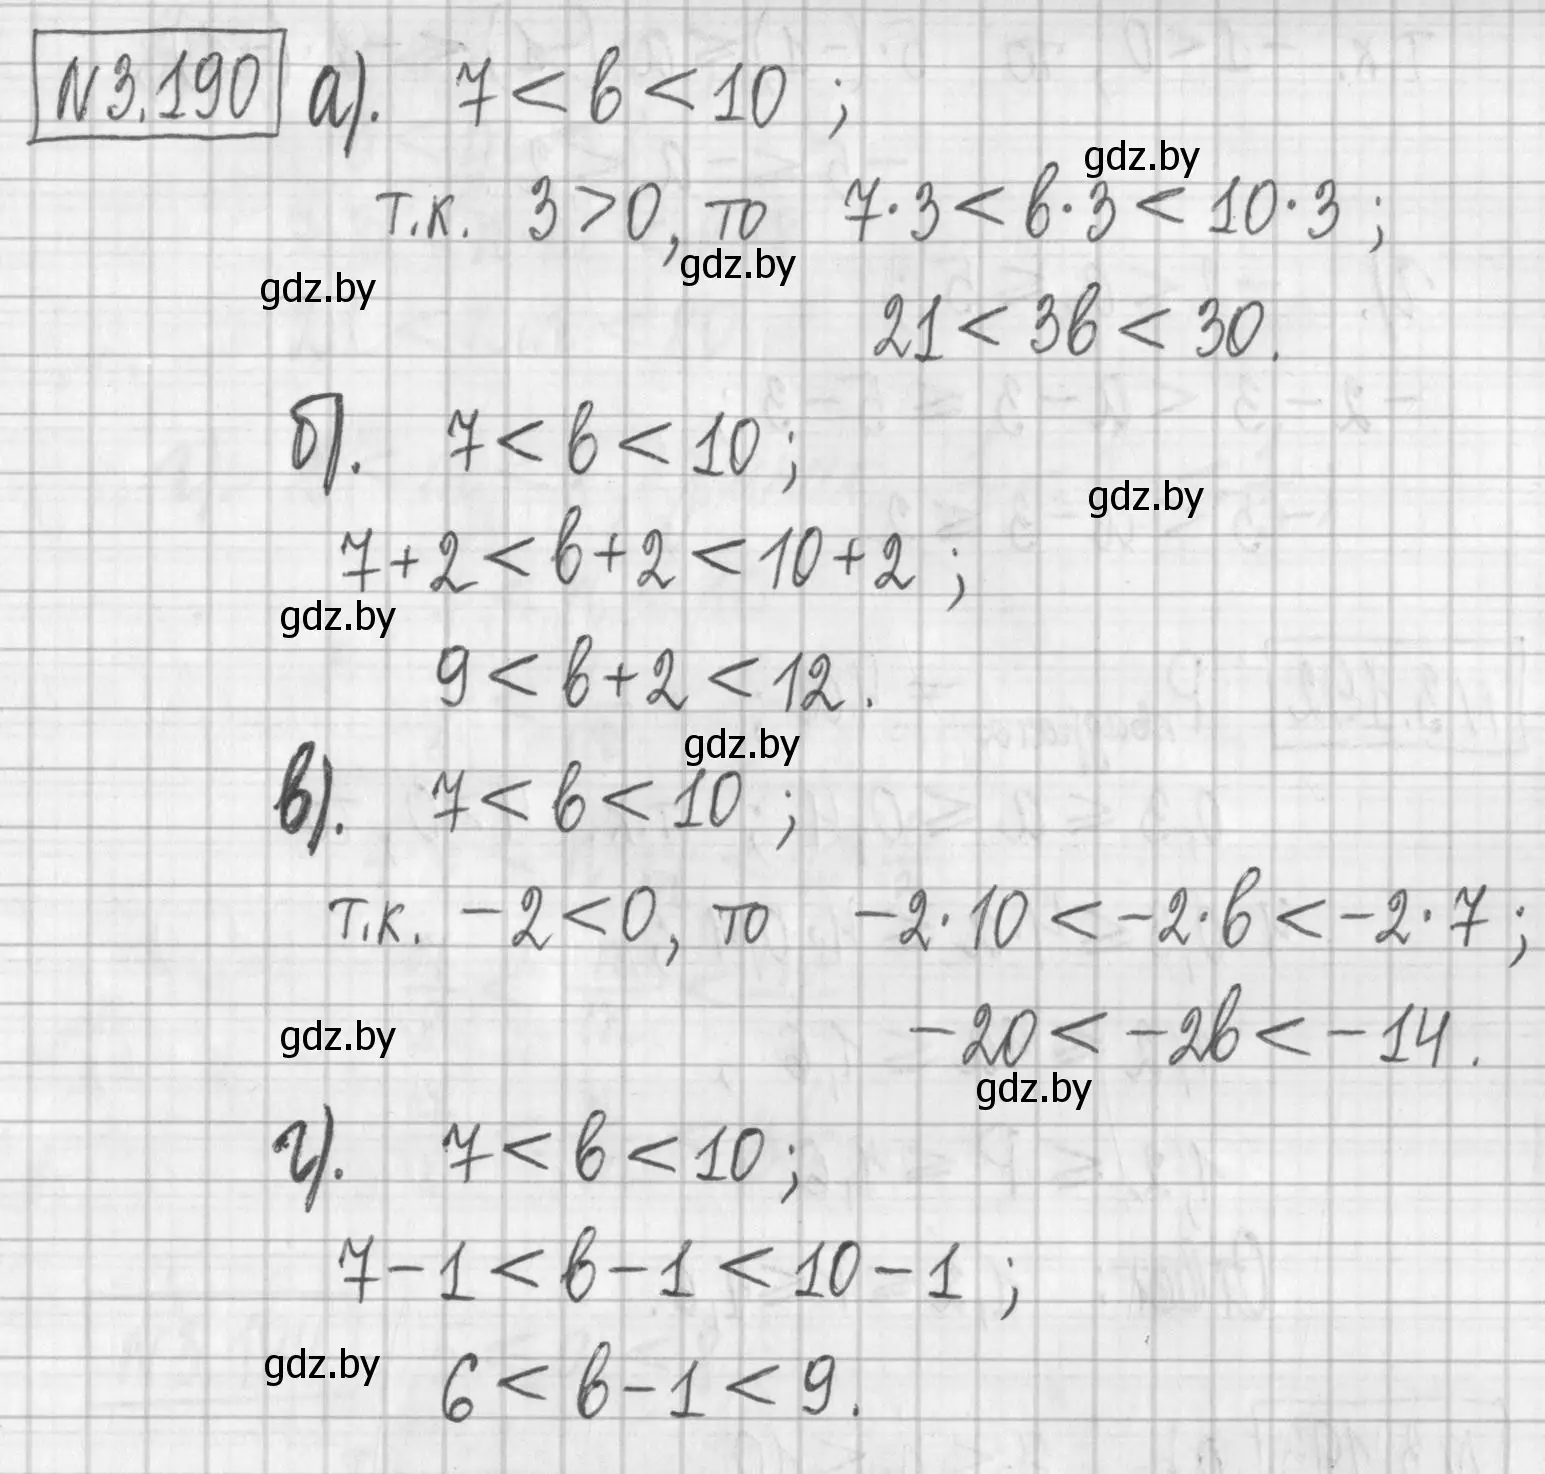 N3.190 а). 7 < в < 10 ;
gdz.by
т.к. 3 > 0, то 7·3 < в·3 < 10·3 ;
gdz.by
gdz.by
21 < 3в < 30.
б). 7 < в < 10 ;
gdz.by
7 + 2 < в + 2 < 10 + 2 ;
gdz.by
9 < в + 2 < 12 .
gdz.by
в). 7 < в < 10 ;
т.к. -2 < 0, то -2·10 < -2·в < -2·7 ;
gdz.by
-20 < -2в < -14 .
gdz.by
г). 7 < в < 10 ;
7 - 1 < в - 1 < 10 - 1 ;
gdz.by
6 < в - 1 < 9 .